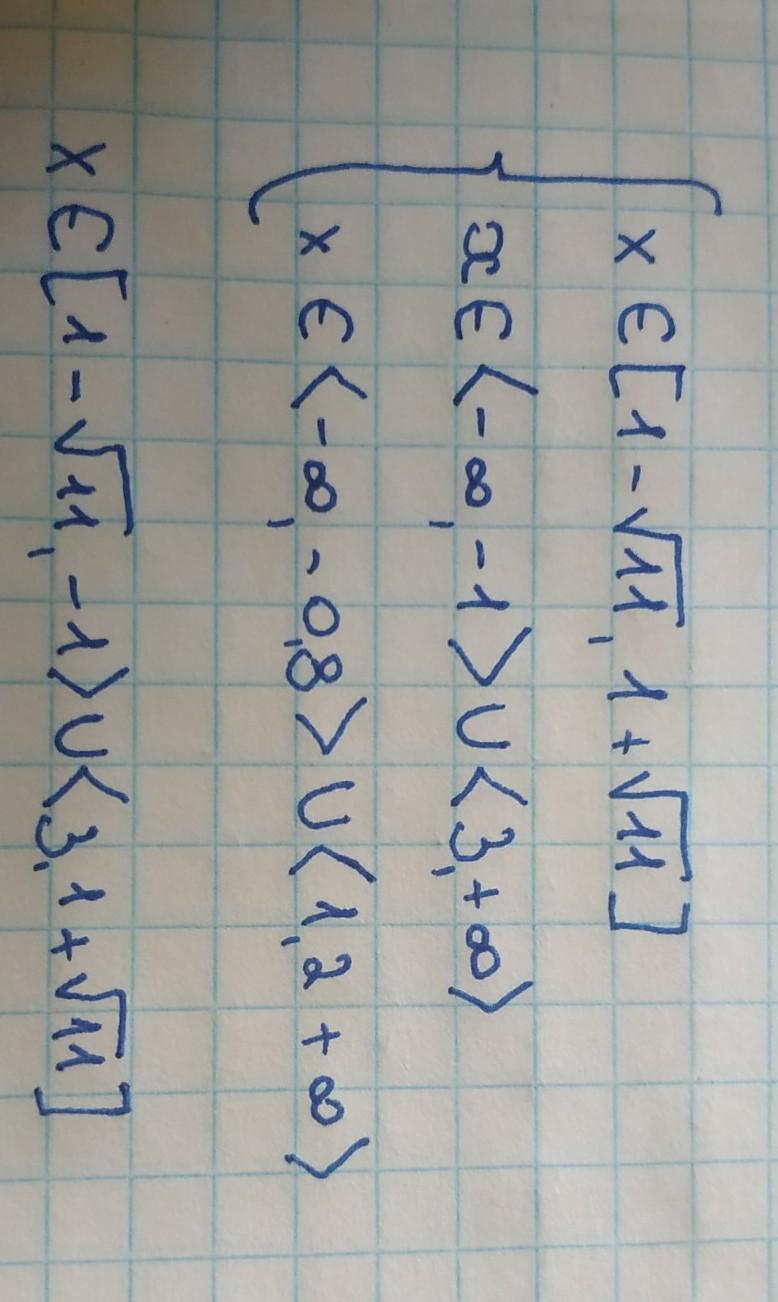 x ∈ [1-√11, 1+√11]
x ∈ <-∞, -1> ∪ <3, +∞>
x ∈ <-∞, -0,8> ∪ <1,2 +∞>
x ∈ [1-√11, -1> ∪ <3, 1+√11]